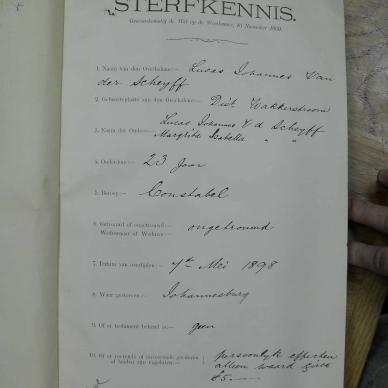 STERFKENNIS.
Overeenkomstig de Wet op de Weeskamer, 10 November 1869.
1. Naam van den Overledene:— Lucas Johannes Van
der Scheyff
2. Geboorteplaats van den Overledene:— Dist Wakkerstroom
Lucas Johannes V d Scheyff
3. Naam der Ouders:— Margritta Isabella " "
4. Ouderdom:— 23 jaar
5. Beroep:— Constabel
6. Getrouwd of ongetrouwd:— ongetrouwd
Weduwnaar of Weduwe:—
7. Datum van overlijden:— Mei 1898
8. Waar gestorven:— Johannesburg
9. Of er testament bekend is:— geen
10. Of er roerende of onroerende goederen persoonlyk effecten
of beiden zijn nagelaten:— alleen waard circa
£5